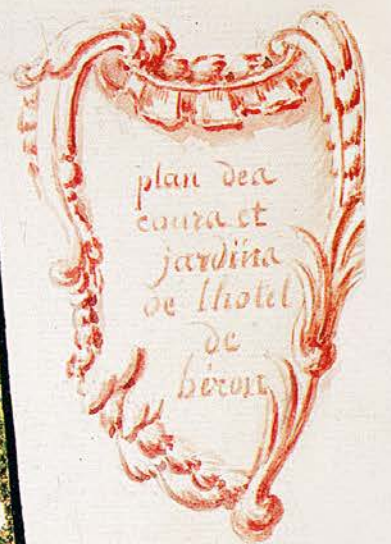 plan des
cours et
jardins
de lhotel
de
héron